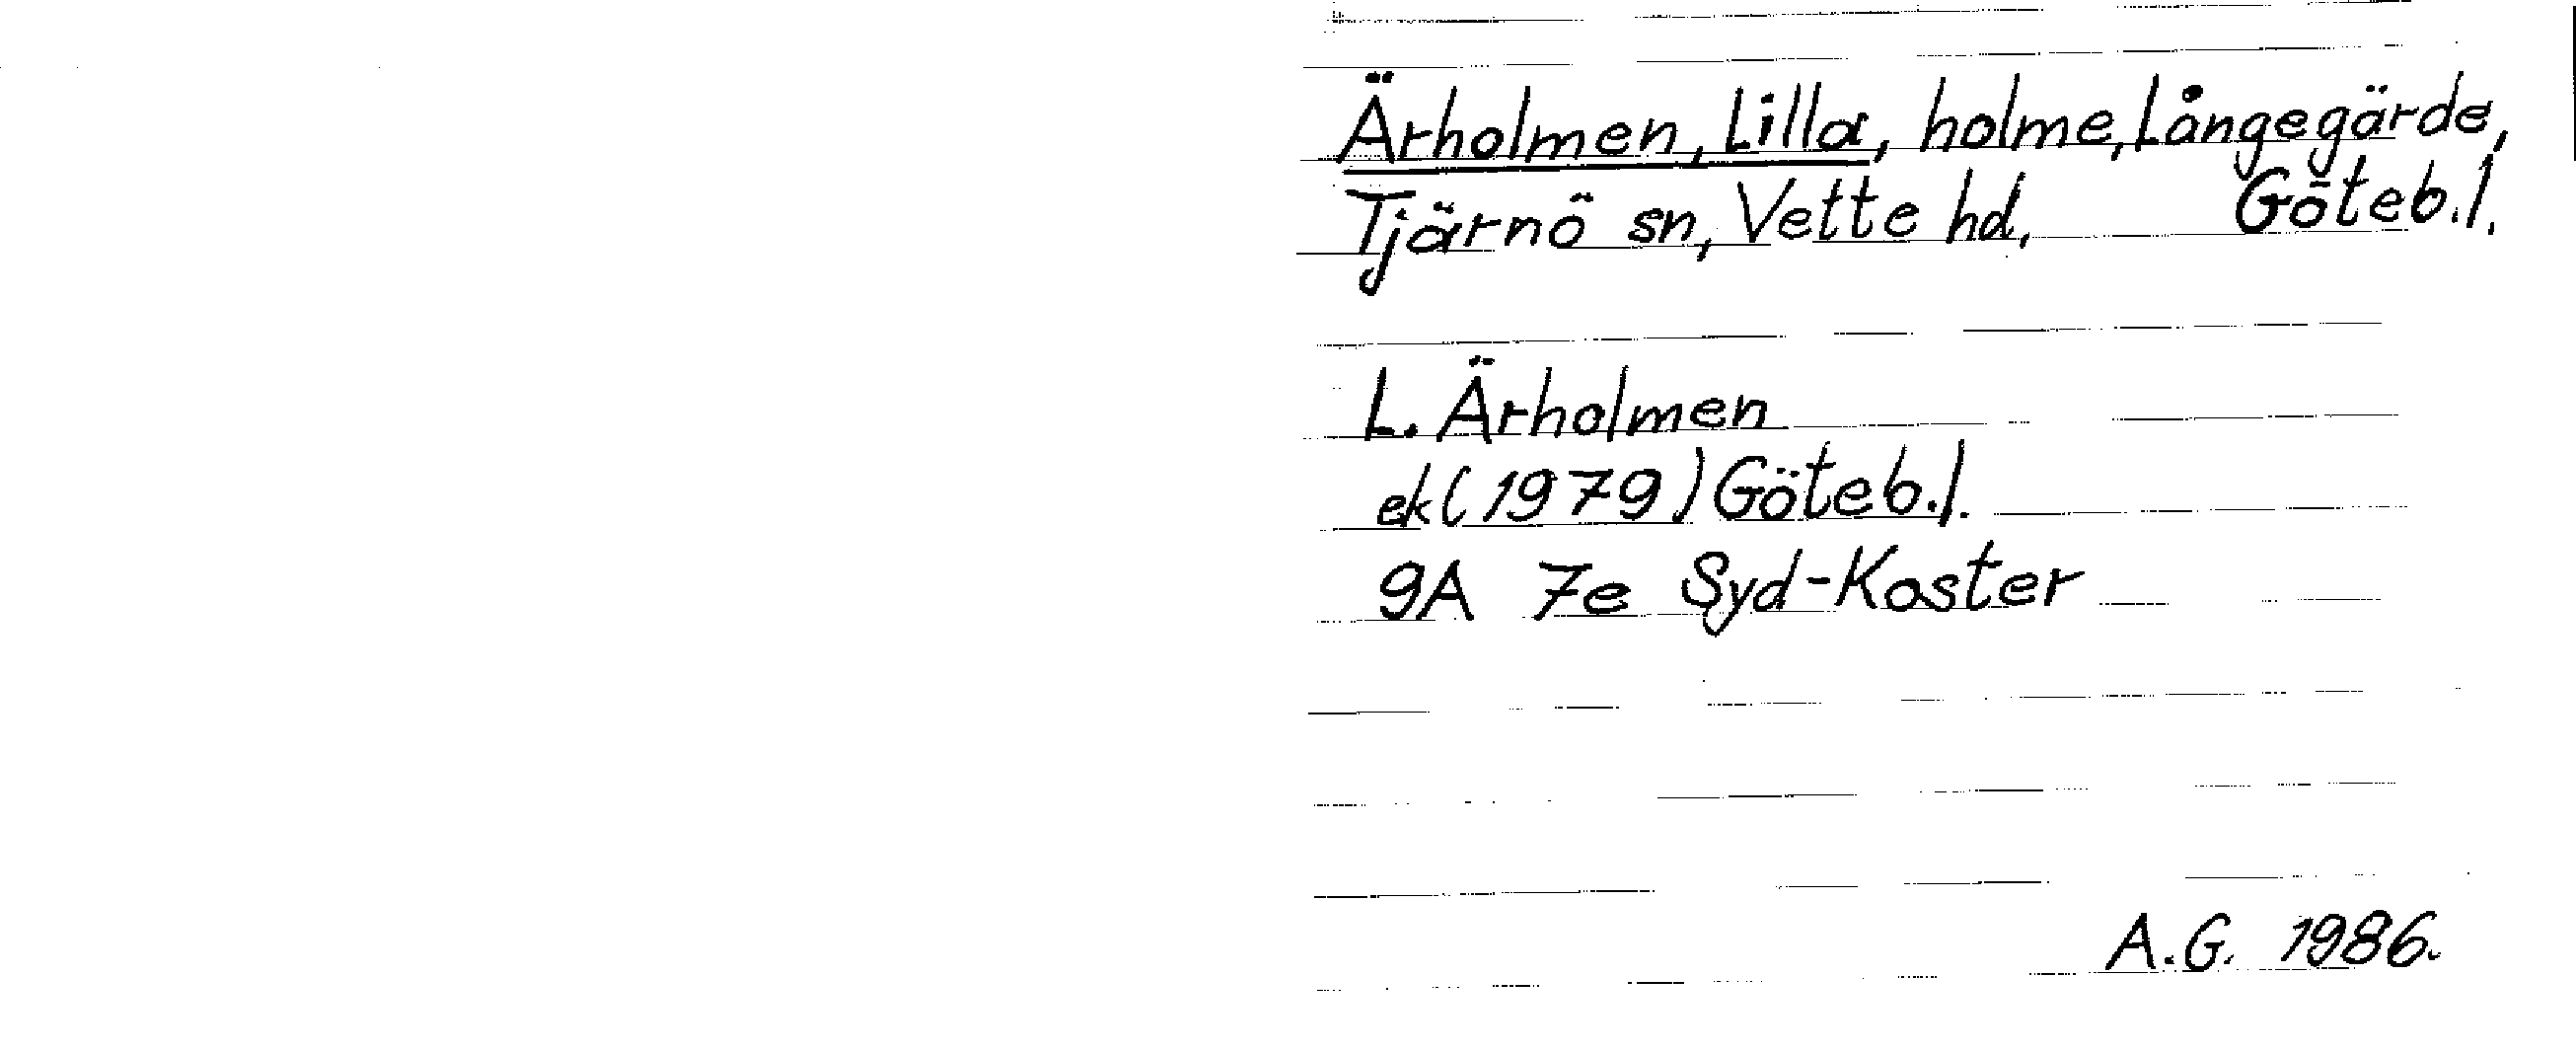 Ärholmen, Lilla, holme, Långegärde,
Tjärnö sn, Vette hd, Göteb.l.
L. Ärholmen
ek (1979) Göteb.l.
9A 7e Syd-Koster
A.G. 1986.